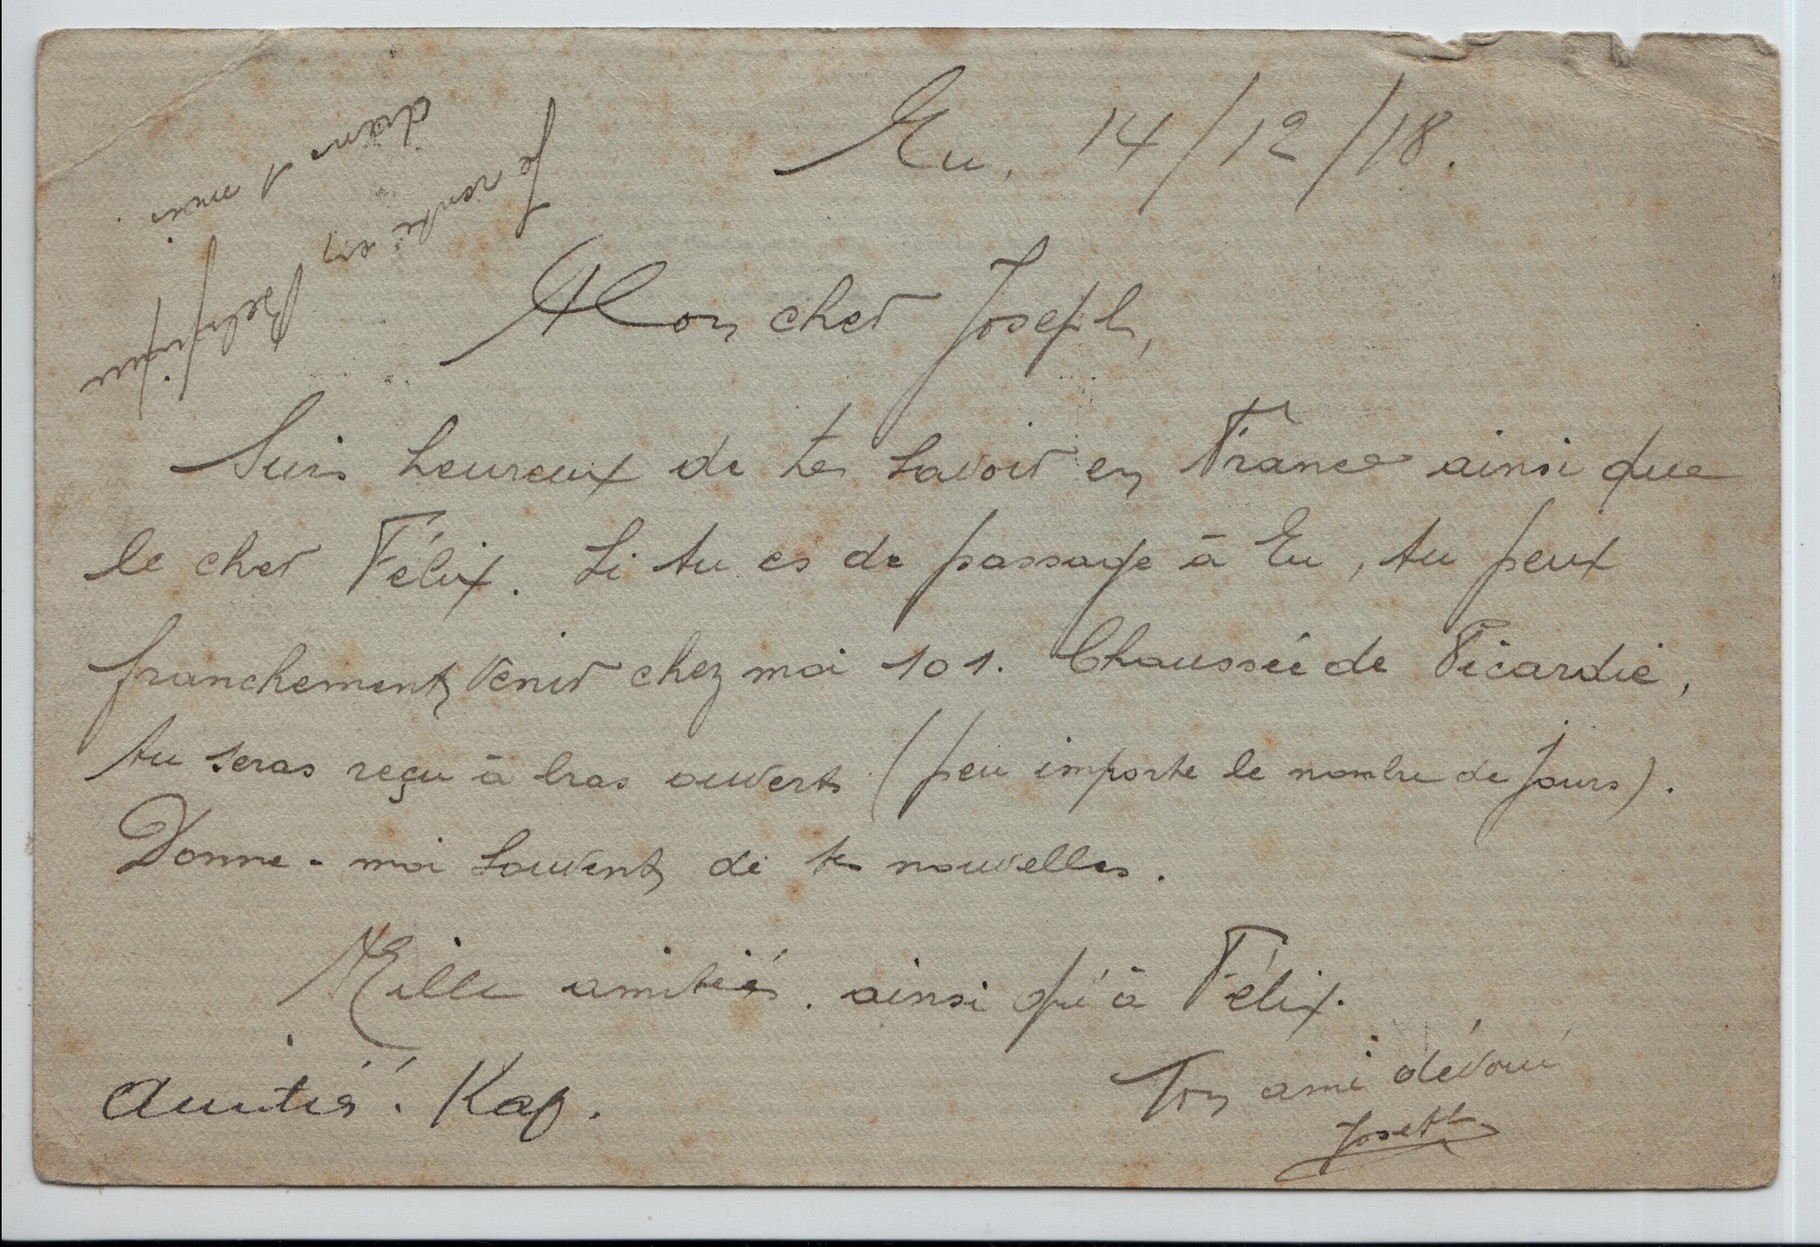 Eu, 14/12/18.
Mon cher Joseph,
Suis heureux de te savoir en France ainsi que
le cher Félix. Si tu es de passage à Eu, tu peux
franchement venir chez moi 101. Chaussée de Picardie,
tu seras reçu à bras ouverts (peu importe le nombre de jours).
Donne-moi souvent de tes nouvelles.
Mille amitiés. ainsi qu'à Félix.
Ton ami dévoué
Amitiés. Kap.
Je rentre en
Belgique
dans 1 mois.